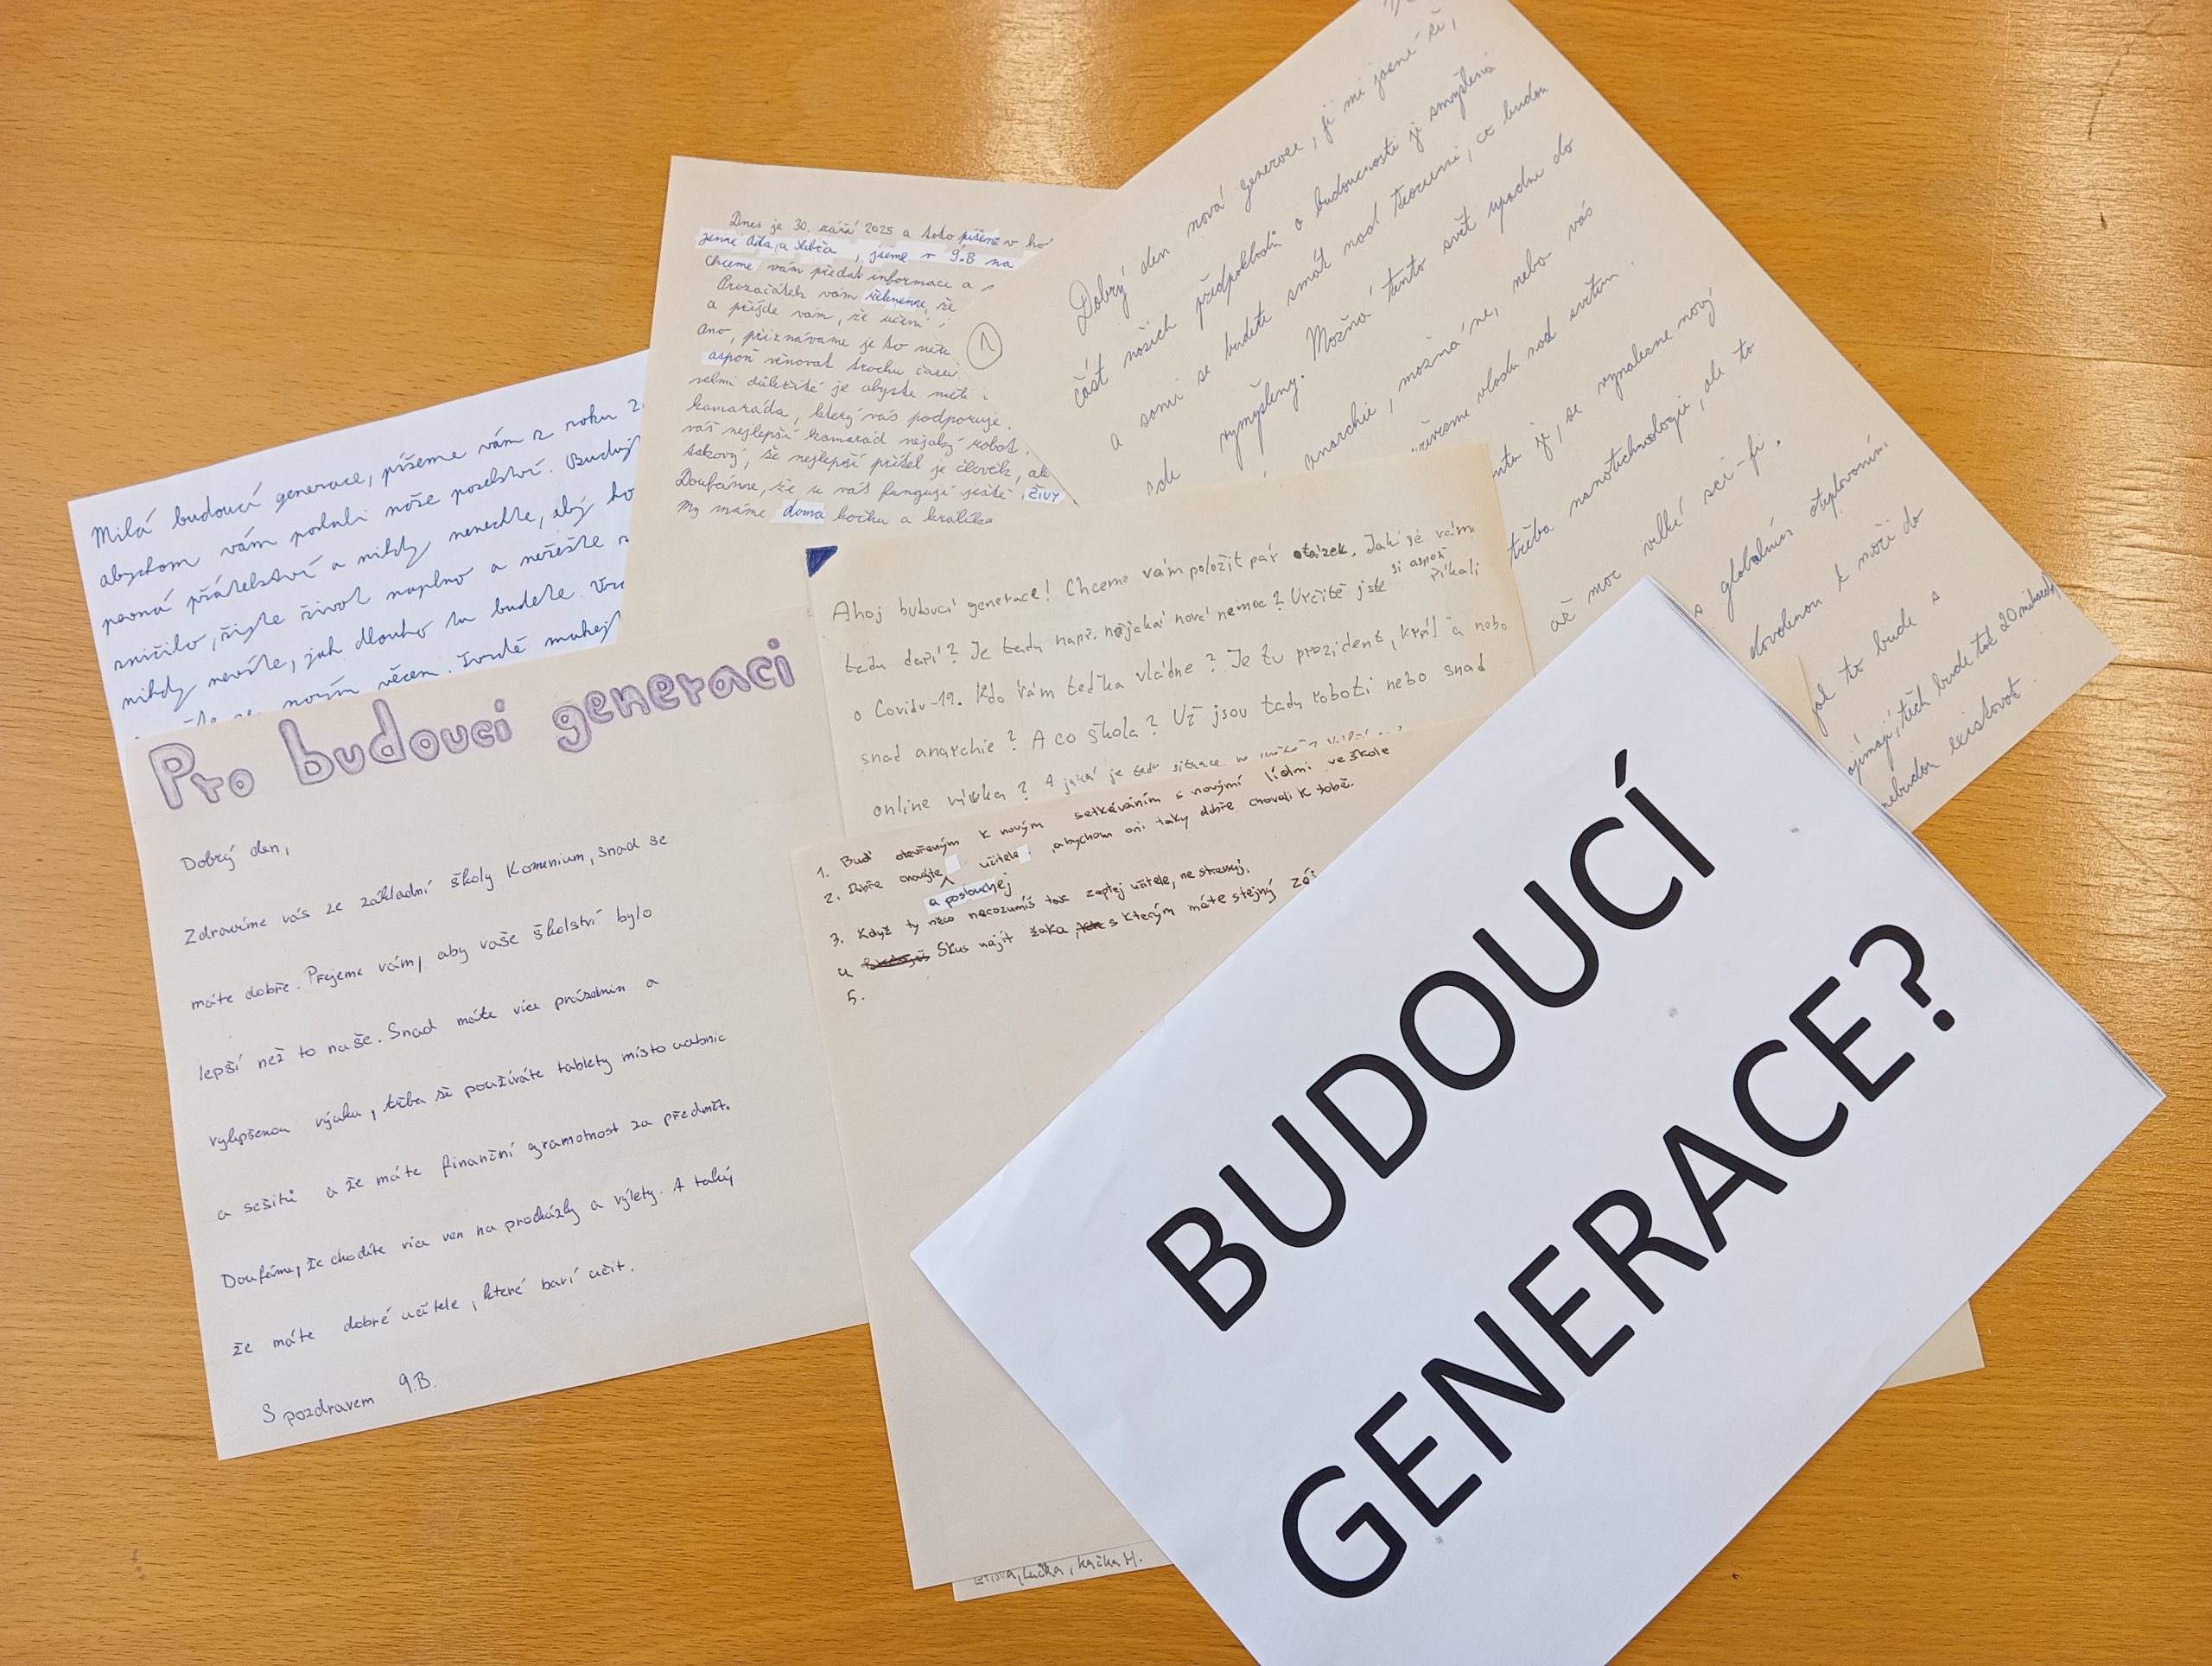 Milá budoucí generace, píšeme vám z roku
abychom vám podali naše poselství. Budujt
pevná přátelství a nikdy nenechte, aby ho
zničilo, žijte život naplno a neřešte
nikdy nevíte, jak dlouho tu budete.
novým věcem. Tvrdě makejt
Dnes je 30. září 2025 a toto píšeme v ho
jsme Áďa, a , jsme v 9.B na
Chceme vám předat informace a
Prozačátek vám řekneme, že
a přijde vám, že učení
ano, přiznáváme je to
aspoň věnovat trochu času.
velmi důležité je abyste měli
kamaráda, který vás podporuje.
váš nejlepší kamarád nějaký robot.
takový, že nejlepší přítel je člověk, ale
Doufáme, že u vás fungují ještě živý
My máme doma kočku a králíka
1
Dobrý den nová generace, je mi jasné že,
část našich předpokladů o budoucnosti je smyšlená
a sami se budete smát nad teoriemi, co budou
zde vymyšleny. Možná tento svět upadne do
anarchie, možná ne, nebo vás
převezme vládu nad světem.
je, se vynalezne nový
třeba nanotechnologie, ale to
až moc velké sci-fi.
s globálním oteplováním
dovolenou k moři do
jak to bude s
těch bude tak 20 miliard,
nebudou existovat.
Ahoj budoucí generace! Chceme vám položit pár otázek. Jak se vám
tady daří? Je tady např. nějaká nová nemoc? Určitě jste si aspoň říkali
o Covidu-19. Kdo vám teďka vládne? Je tu prezident, král a nebo
snad anarchie? A co škola? Už jsou tady roboti nebo snad
online výuka? A jaká je tedy situace
1. Buď otevřeným k novým setkáváním s novými lidmi ve škole
2. Dobře chovejte učitele, abychom oni taky dobře chovali k tobě.
a poslouchej
3. Když ty něco nerozumíš tak zeptej učitele, ne stresuj.
4 Skus najít žaka, s kterým máte stejný zá
5.
Pro budoucí generaci
Dobrý den,
Zdravíme vás ze základní školy Komenium, snad se
máte dobře. Přejeme vám, aby vaše školství bylo
lepší než to naše. Snad máte více prázdnin a
vylepšenou výuku, třeba že používáte tablety místo učebnic
a sešitů a že máte finanční gramotnost za předmět.
Doufáme, že chodíte více ven na procházky a výlety. A taky
že máte dobré učitele, které baví učit.
S pozdravem 9.B.
Kačka M.
BUDOUCÍ
GENERACE?